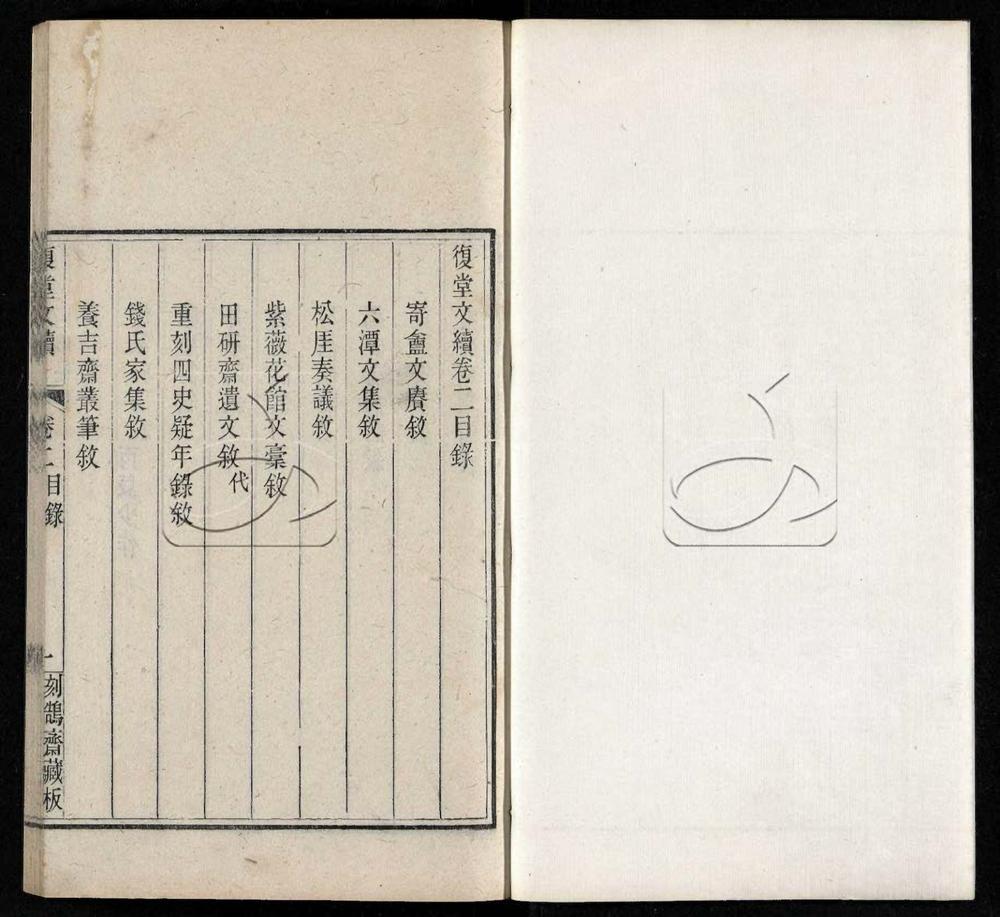 復堂文續卷二目錄
寄盦文賸敘
六潭文集敘
松厓奏議敘
紫薇花館文稾敘
田硏齋遺文敘代
重刻四史疑年錄敘
錢氏家集敘
養吉齋叢筆敘
復堂文續 卷二目錄 一 刻鵠齋藏板